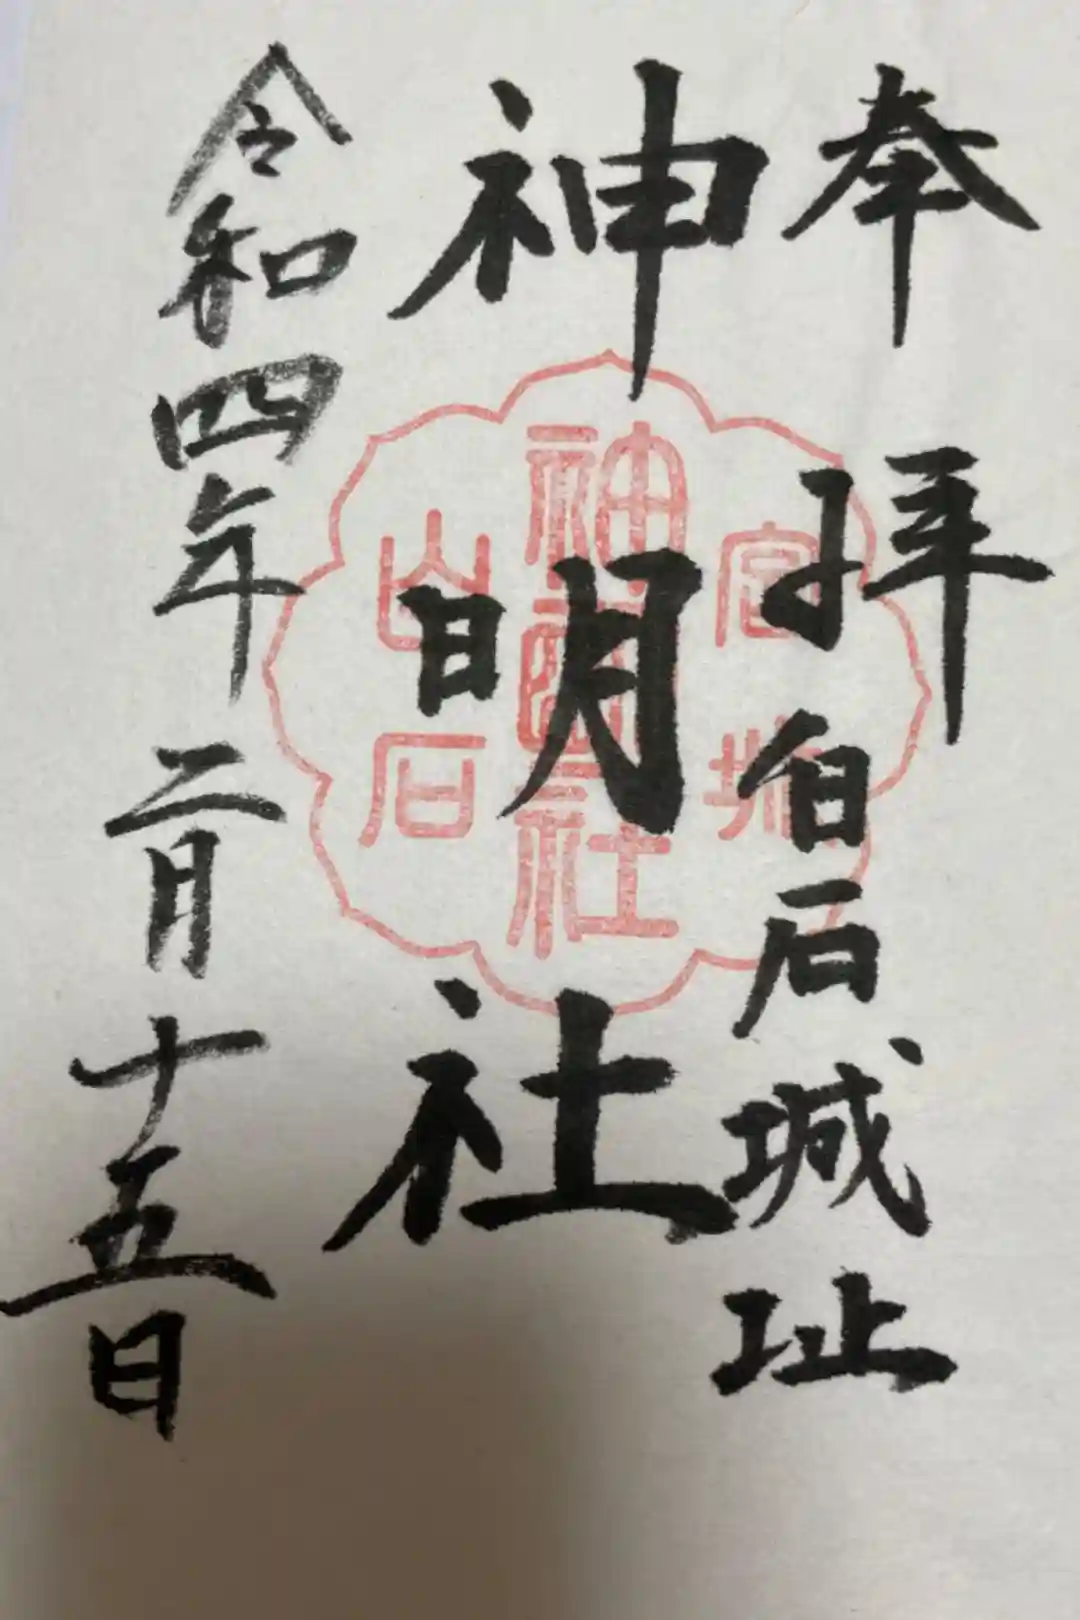 奉拝 白石城址
神明社
宮城
神明社
白石
令和四年二月十五日